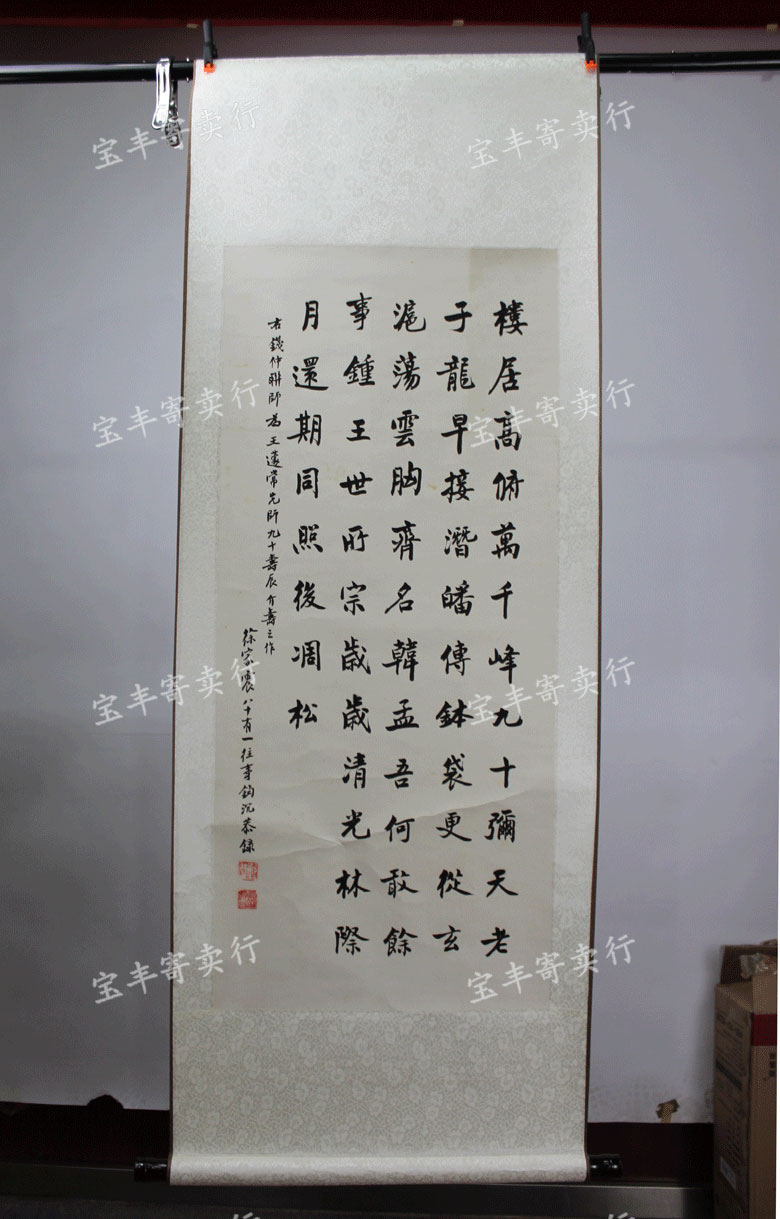 樓居高俯萬千峰九十彌天老
于龍早接潛皤傳鉢袋更從玄
滬蕩雲胸齊名韓孟吾何敢餘
事鍾王世所宗歲歲清光林際
月還期同照後凋松
右錢仲聯師為王蘧常先師九十壽辰介壽之作
徐家震八十有一往事鈎沉恭錄
宝丰寄卖行
宝丰寄卖行
宝丰寄卖行
宝丰寄卖行
宝丰寄卖行
宝丰寄卖行
宝丰寄卖行
宝丰寄卖行